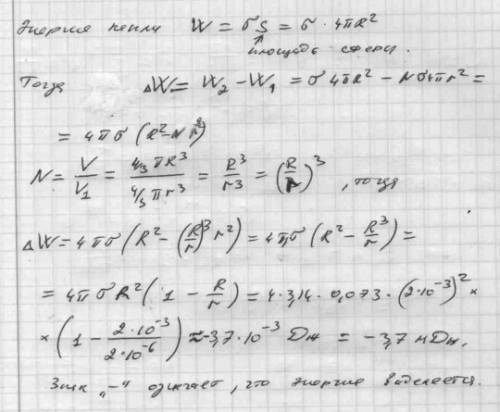 Энергия капли W = σS = σ · 4πR²
площадь сферы.
Тогда ΔW = W₂ - W₁ = σ4πR² - Nσ4πr² =
= 4πσ (R² - Nr²)
N = V/V₁ = (4/3 πR³)/(4/3 πr³) = R³/r³ = (R/r)³, тогда
ΔW = 4πσ (R² - (R/r)³ r²) = 4πσ (R² - R³/r) =
= 4πσR² (1 - R/r) = 4·3,14·0,073·(2·10⁻³)² ×
× (1 - 2·10⁻³/2·10⁻⁶) ≈ -3,7·10⁻³ Дж = -3,7 мДж.
Знак „-" означает, что энергия выделяется.